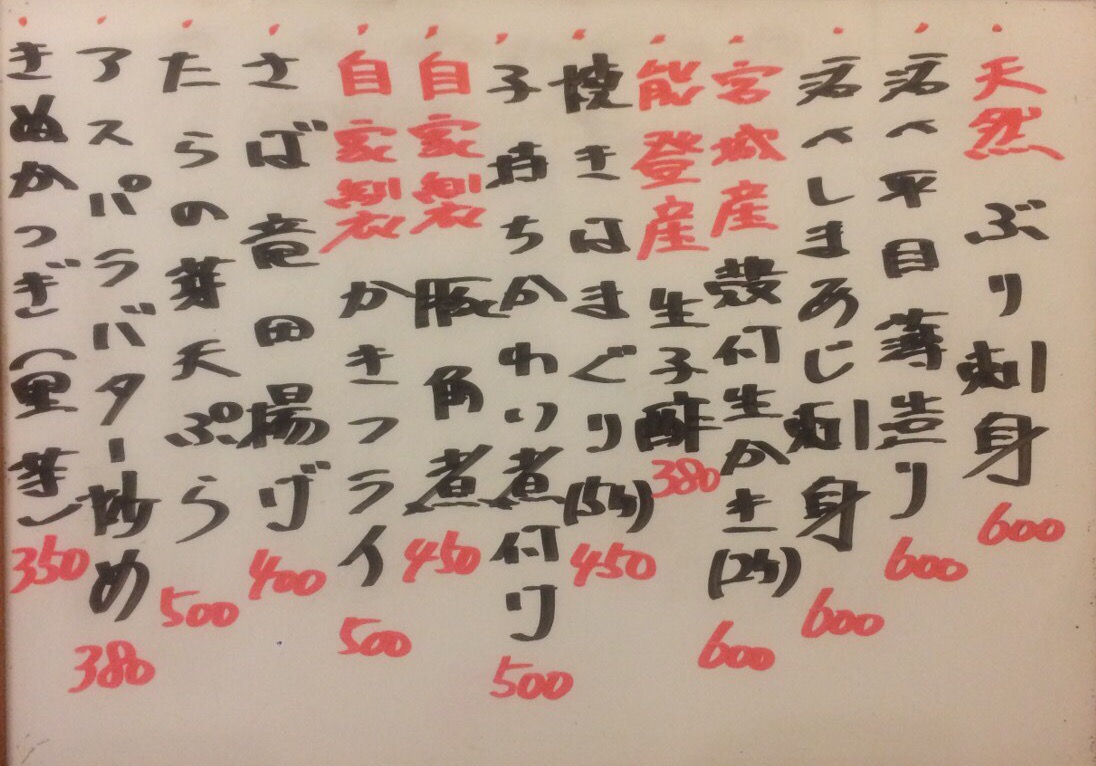 天然 ぶり刺身 600
活〆平目薄造り 600
活〆しまあじ刺身 600
宮城産 殻付生かき(2ケ) 600
能登産 生子酢 380
焼きはまぐり(5ケ) 450
子持ちかれい煮付け 500
自家製 豚角煮 450
自家製 かきフライ 500
さば竜田揚げ 400
たらの芽天ぷら 500
アスパラバター炒め 380
きぬかつぎ(里芋) 350